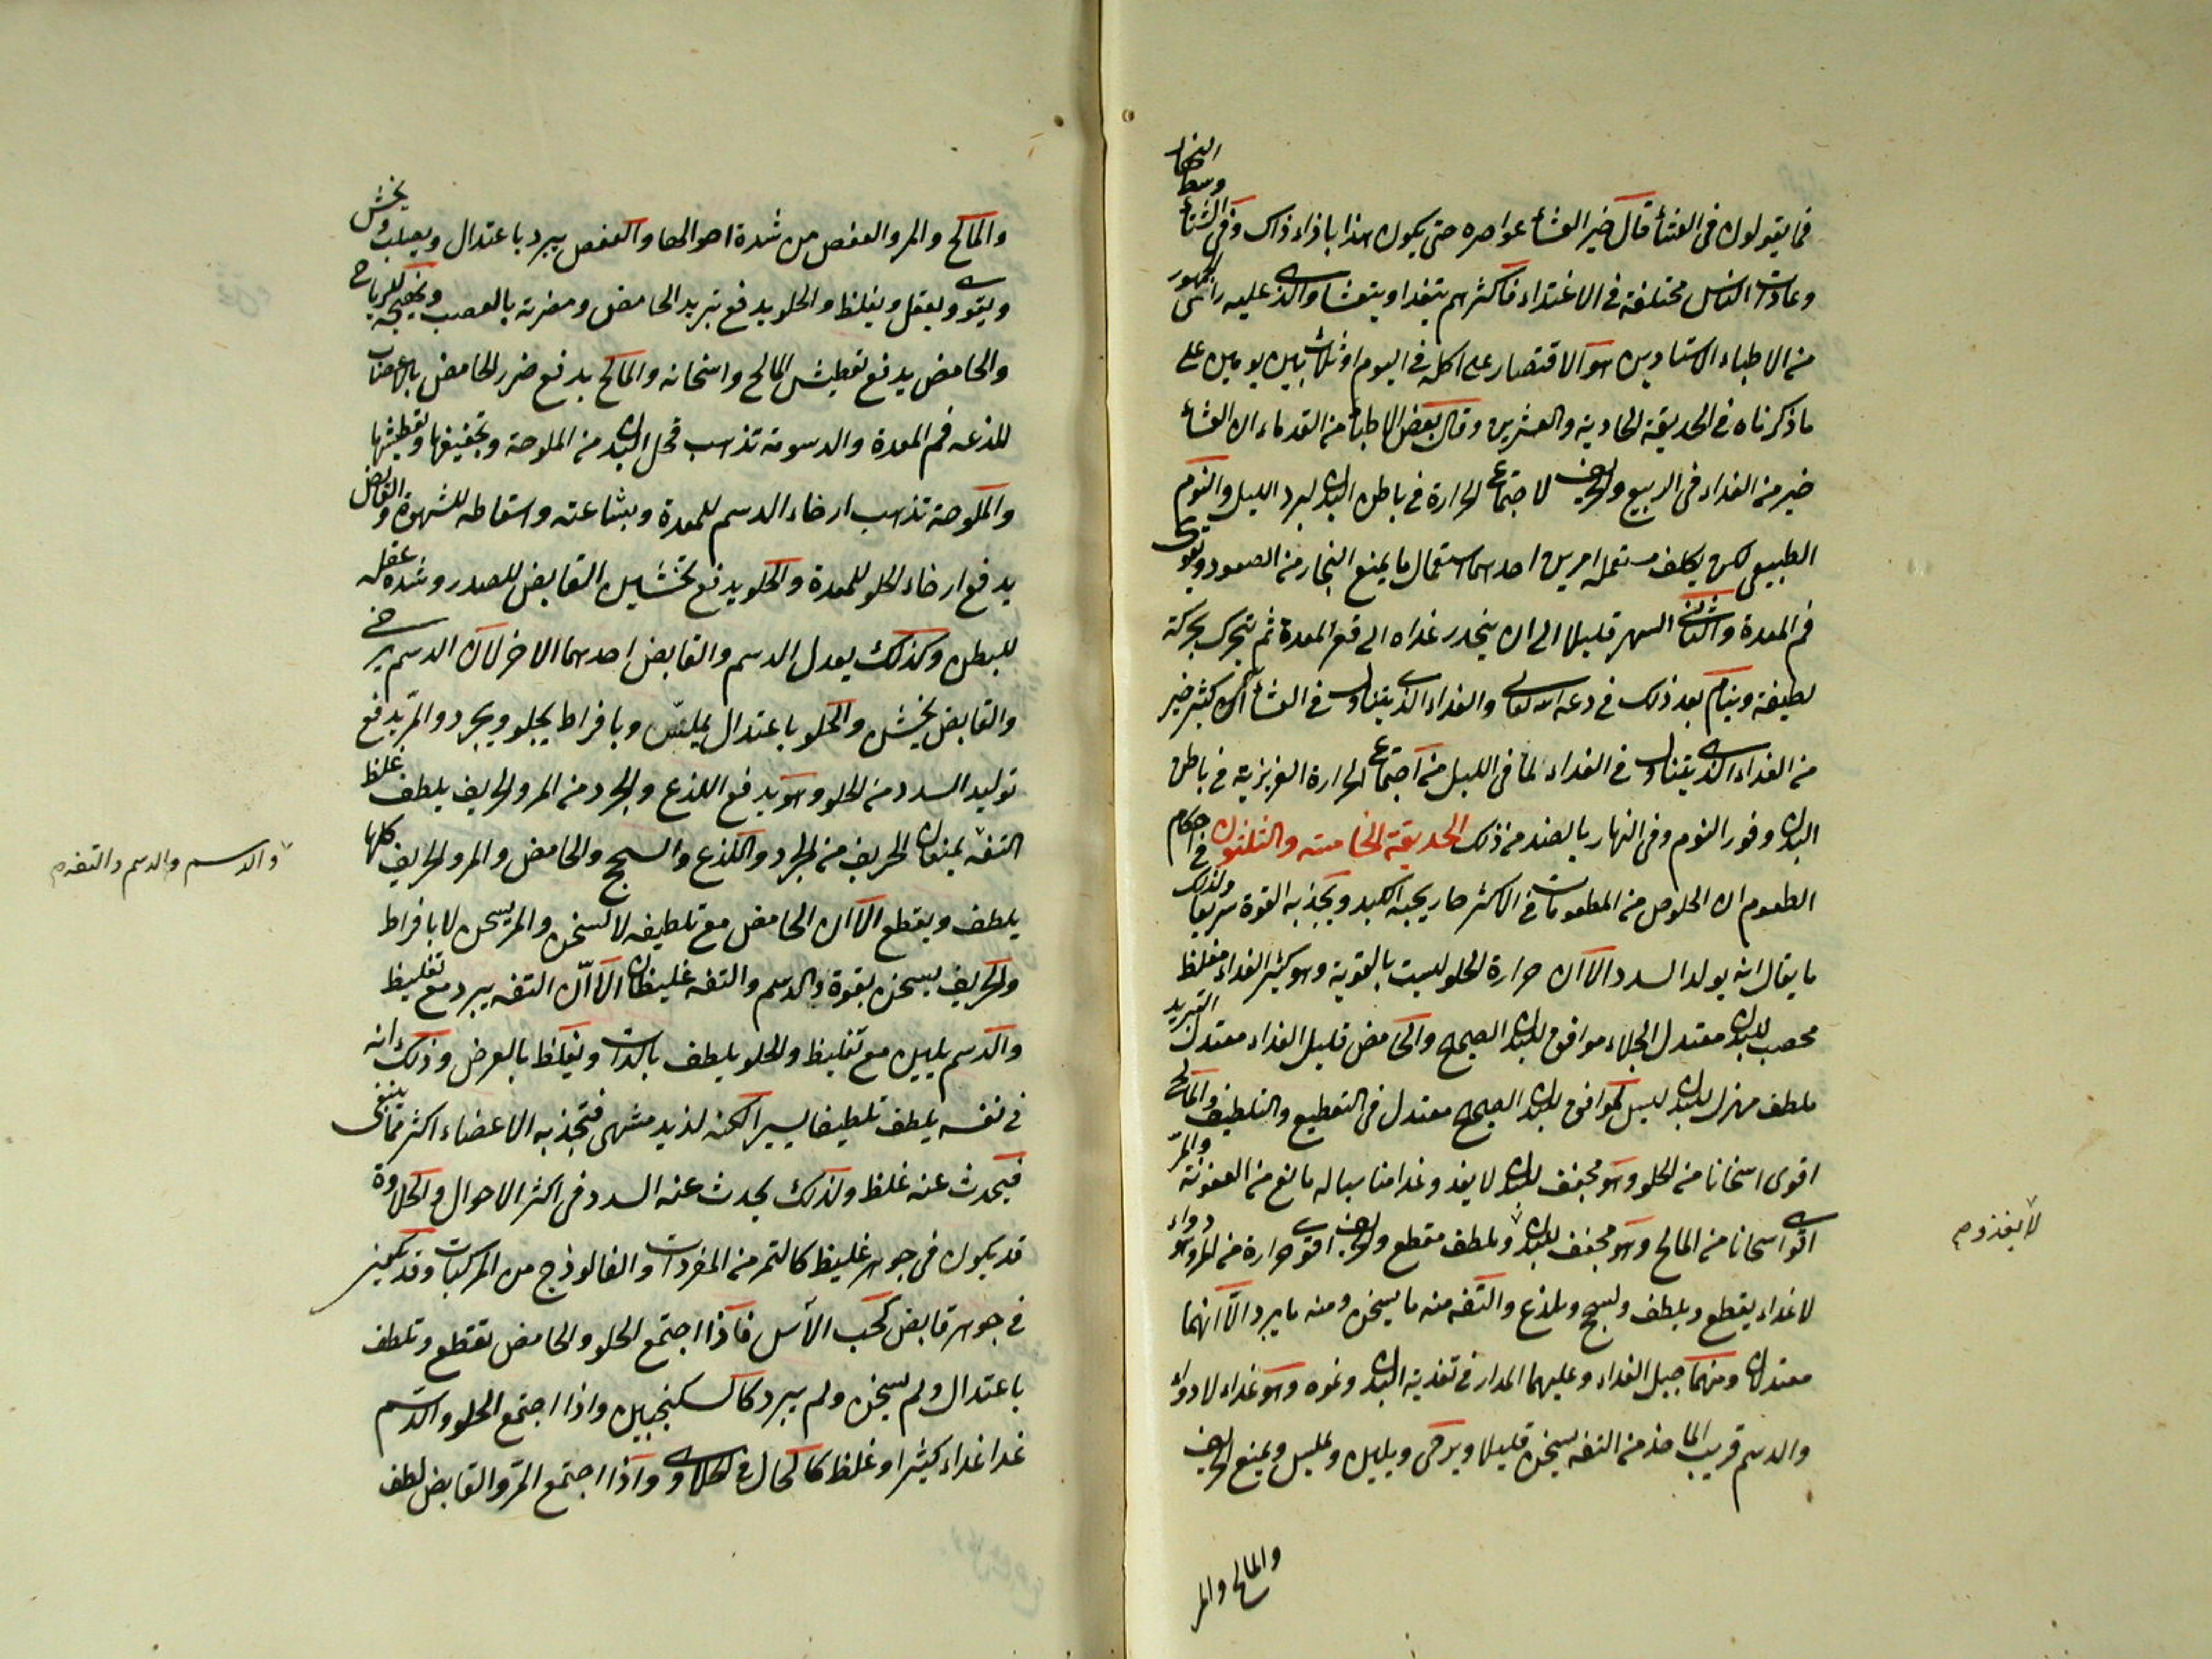 فما يقولون في العشأ قال خير العشأ عواصره حتى يكون هذا باذاء ذاك وفي الشتأ وسط النهار
وعادات الناس مختلفة في الاغتداء فاكثرهم يتغدا ويتعشا والذى عليه رأى الجمهور
من الاطباء الاستادين هو الاقتصار على اكلة في اليوم او ثلاث بين يومين على
ما ذكرناه في الحديقة الحادية والعشرين وقال بعض الاطبأ من القدماء ان العشأ
خير من الغداء في الربيع والخريف لاجتماع الحرارة في باطن البدن لبرد الليل والنوم
الطبيعي لكن يكلف مستعمله امرين احدهما استعمال ما يمنع البخار من الصعود ويقوى
فم المعدة والثانى السهر قليلا الى ان ينحدر غداه الى قعر المعدة ثم يتحرك بحركة
لطيفة وينام بعد ذلك في دعة الله تعالى والغداء الذى يتناول في العشأ اكثر خير
من الغداء الذى يتناول في الغداء لما في الليل من اجتماع الحرارة الغريزية في باطن
البدن وفور النوم وفى النهار بالضد من ذلك الحديقة الخامسة والثلثون في احكام
الطعوم ان الحلو من المطعومات في الاكثر حار يحبه الكبد ويجذبه القوة سريعا ولذلك
ما يقال انه يولد السدد الا ان حرارة الحلو ليست بالقوية وهو كثير الغداء مغلظ
مخصب للبدن معتدل الجلاء موافق للبدن الصحيح والحامض قليل الغداء معتدل التبريد
ملطف مهزل للبدن ليس بموافق للبدن الصحيح معتدل في التقطيع والتلطيف والمالح
اقوى اسخانا من الحلو وهو مجفف للبدن لا يغذو غدا مناسبا له مانع من العفونة والمر
اقوى اسخانا من المالح وهو مجفف للبدن وملطف مقطع والحريف اقوى حرارة من المر وهو دواء
لا غداء يقطع ويلطف ويسحج ويلذع والتفه منه ما يسخن ومنه ما يبرد الا انهما
معتدلان ومنهما جل الغداء وعليهما المدار في تغذية البدن ونموه وهو غداء لا دواء
والدسم قريب الماخذ من التفه يسخن قليلا ويرخى ويلين ويملس ويمنع الحريف
والمالح والمر
لا يغذو م
والمالح والمر والعفص من شدة والعفص يبرد باعتدال ويصلب ويخشن
ويقوى ويعقل ويغلظ والحلو يدفع تبريد الحامض ومضرته بالعصب وتهييجه للرياح
والحامض يدفع تعطيش المالح واسخانه والمالح يدفع ضرر الحامض بالاعصاب
للذعه فم المعدة والدسومة تذهب قحل البدن من الملوحة وتجفيفها وتعطيشها
والملوحة تذهب ارخاء الدسم للمعدة وبشاعته واسقاطه للشهوة والقابض
يدفع ارخاء الحلو للمعدة والحلو يدفع تخشين القابض للصدر وشدة عقله
للبطن وكذلك يعدل الدسم والقابض احدهما الاخر لان الدسم يرخى
والقابض يخشن والحلو باعتدال يملس وبافراط يجلو ويجرد والمر يدفع
توليد السدد من الحلو وهو يدفع اللذع والجرد من المر والحريف يلطف غلظ
التفه يمنعان الحريف من الجرد واللذع والسحج والحامض والمر والحريف كلها
يلطف ويقطع الا ان الحامض مع تلطيفه لا يسخن والمر يسخن لا بافراط
والحريف يسخن بقوة والدسم والتفه غليظان الا ان التفه يبرد مع تغليظ
والدسم يلين مع تغليظ والحلو يلطف بالذات ويغلظ بالعرض وذلك انه
في نفسه يلطف تلطيفا يسيرا لكنه لذيذ مشهى فتجذبه الاعضاء اكثر مما ينبغى
فيحدث عنه غلظ ولذلك يحدث عنه السدد في اكثر الاحوال والحلاوة
قد يكون في جوهر غليظ كالتمر من المفردات والفالوذج من المركبات وقد يكون
في جوهر قابض كحب الآس فاذا اجتمع الحلو والحامض يقطع وتلطف
باعتدال ولم يسخن ولم يبرد كالسكنجبين واذا اجتمع الحلو والدسم
غدا غداء كثيرا وغلظ كالحال في الحلاوى واذا اجتمع المر والقابض لطف
والدسم والدسم والتفه م